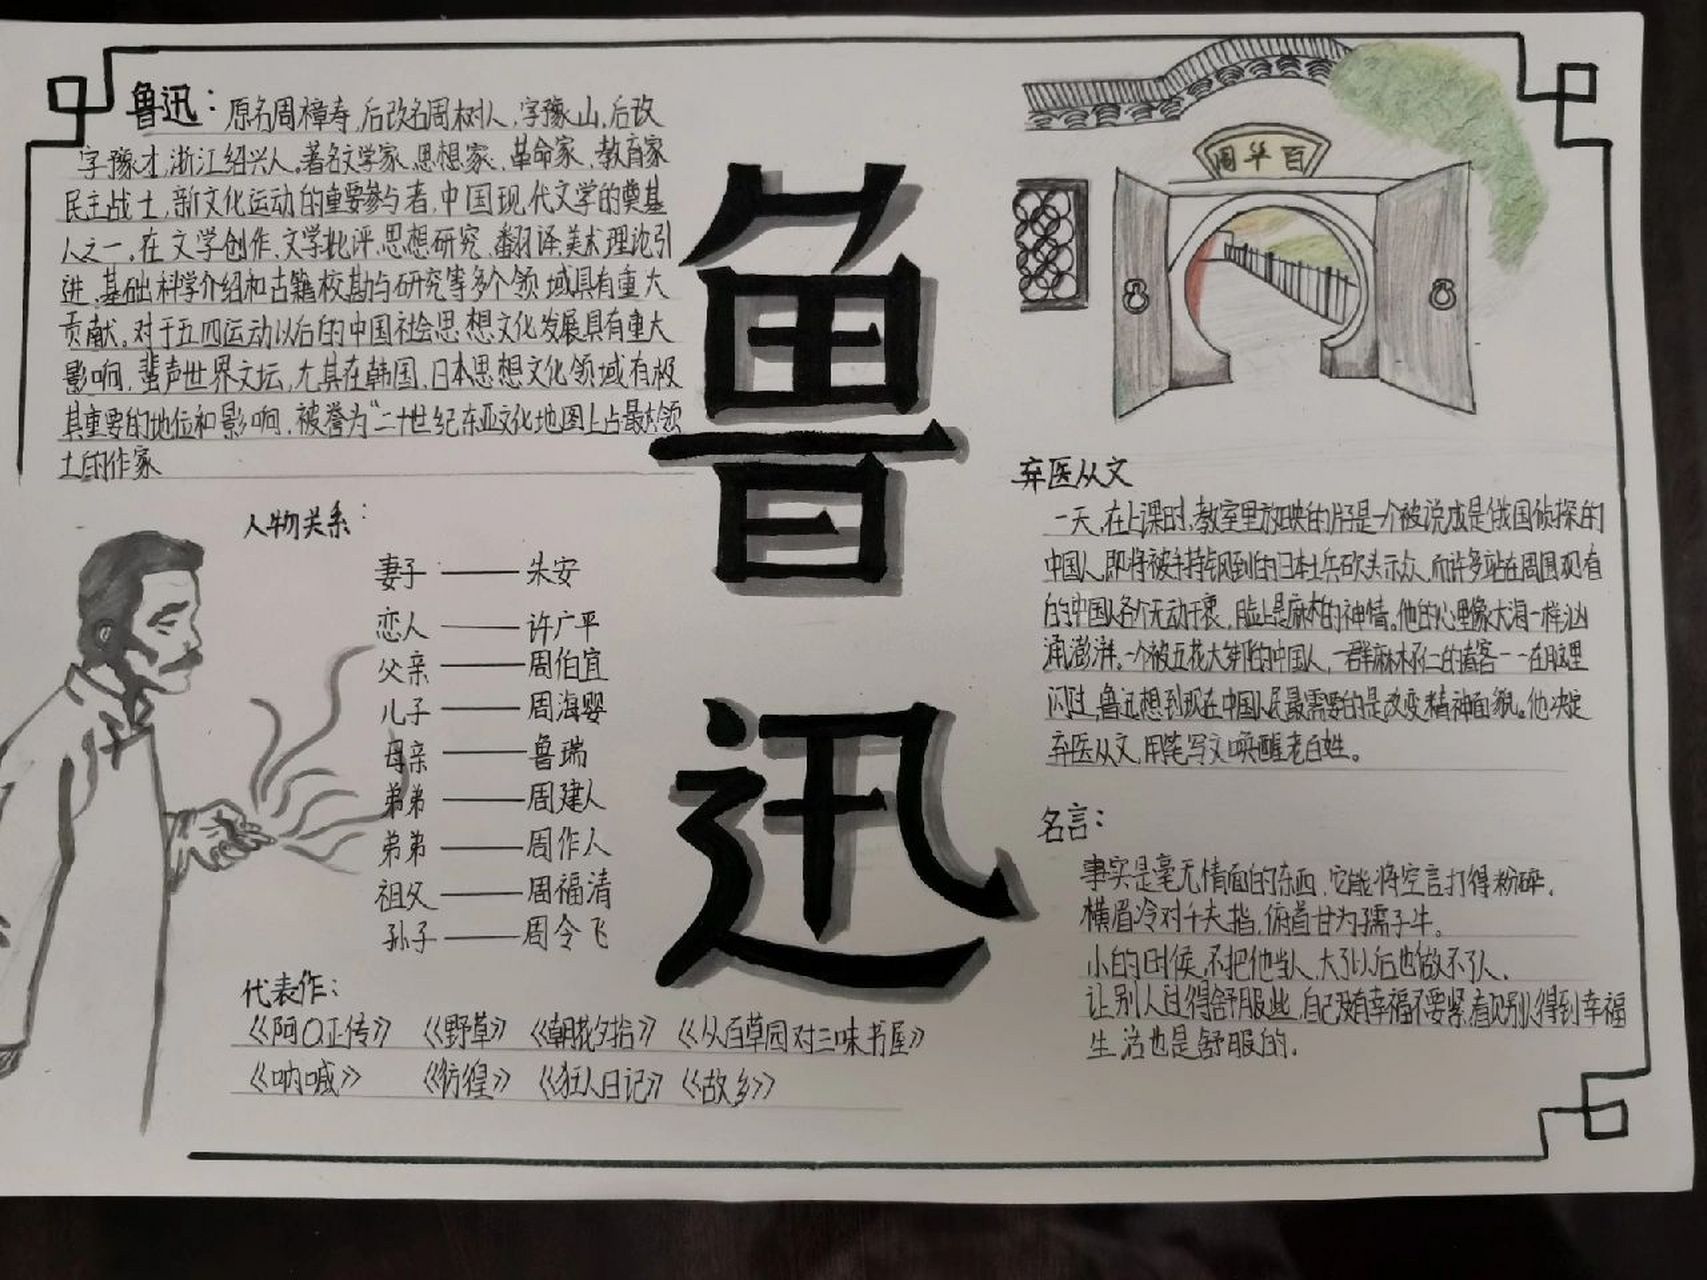 鲁迅：原名周樟寿，后改名周树人，字豫山，后改
字豫才，浙江绍兴人。著名文学家、思想家、革命家、教育家
民主战士，新文化运动的重要参与者，中国现代文学的奠基
人之一。在文学创作、文学批评、思想研究、翻译、美术理论引
进、基础科学介绍和古籍校勘与研究等多个领域具有重大
贡献。对于五四运动以后的中国社会思想文化发展具有重大
影响，蜚声世界文坛，尤其在韩国、日本思想文化领域有极
其重要的地位和影响，被誉为“二十世纪东亚文化地图上占最大领
土的作家
人物关系：
妻子——朱安
恋人——许广平
父亲——周伯宜
儿子——周海婴
母亲——鲁瑞
弟弟——周建人
弟弟——周作人
祖父——周福清
孙子——周令飞
代表作：
《阿Q正传》 《野草》 《朝花夕拾》 《从百草园对三味书屋》
《呐喊》 《彷徨》 《狂人日记》 《故乡》
鲁
迅
周草百
弃医从文
一天，在上课时，教室里放映的片子是一个被说成是俄国侦探的
中国人，即将被手持钢到的日本士兵砍头示众，而许多站在周围观看
的中国人各个无动于衷，脸上是麻木的神情。他的心理像大海一样汹
涌澎湃。一个被五花大绑的中国人，一群麻木不仁的看客——在脑里
闪过，鲁迅想到现在中国人民最需要的是改变精神面貌。他决定
弃医从文，用笔写文唤醒老百姓。
名言：
事实是毫无情面的东西，它能将空言打得粉碎。
横眉冷对千夫指，俯首甘为孺子牛。
小的时候，不把他当人，大了以后也做不了人。
让别人过得舒服些，自己没有幸福不要紧，看见别人得到幸福
生活也是舒服的。